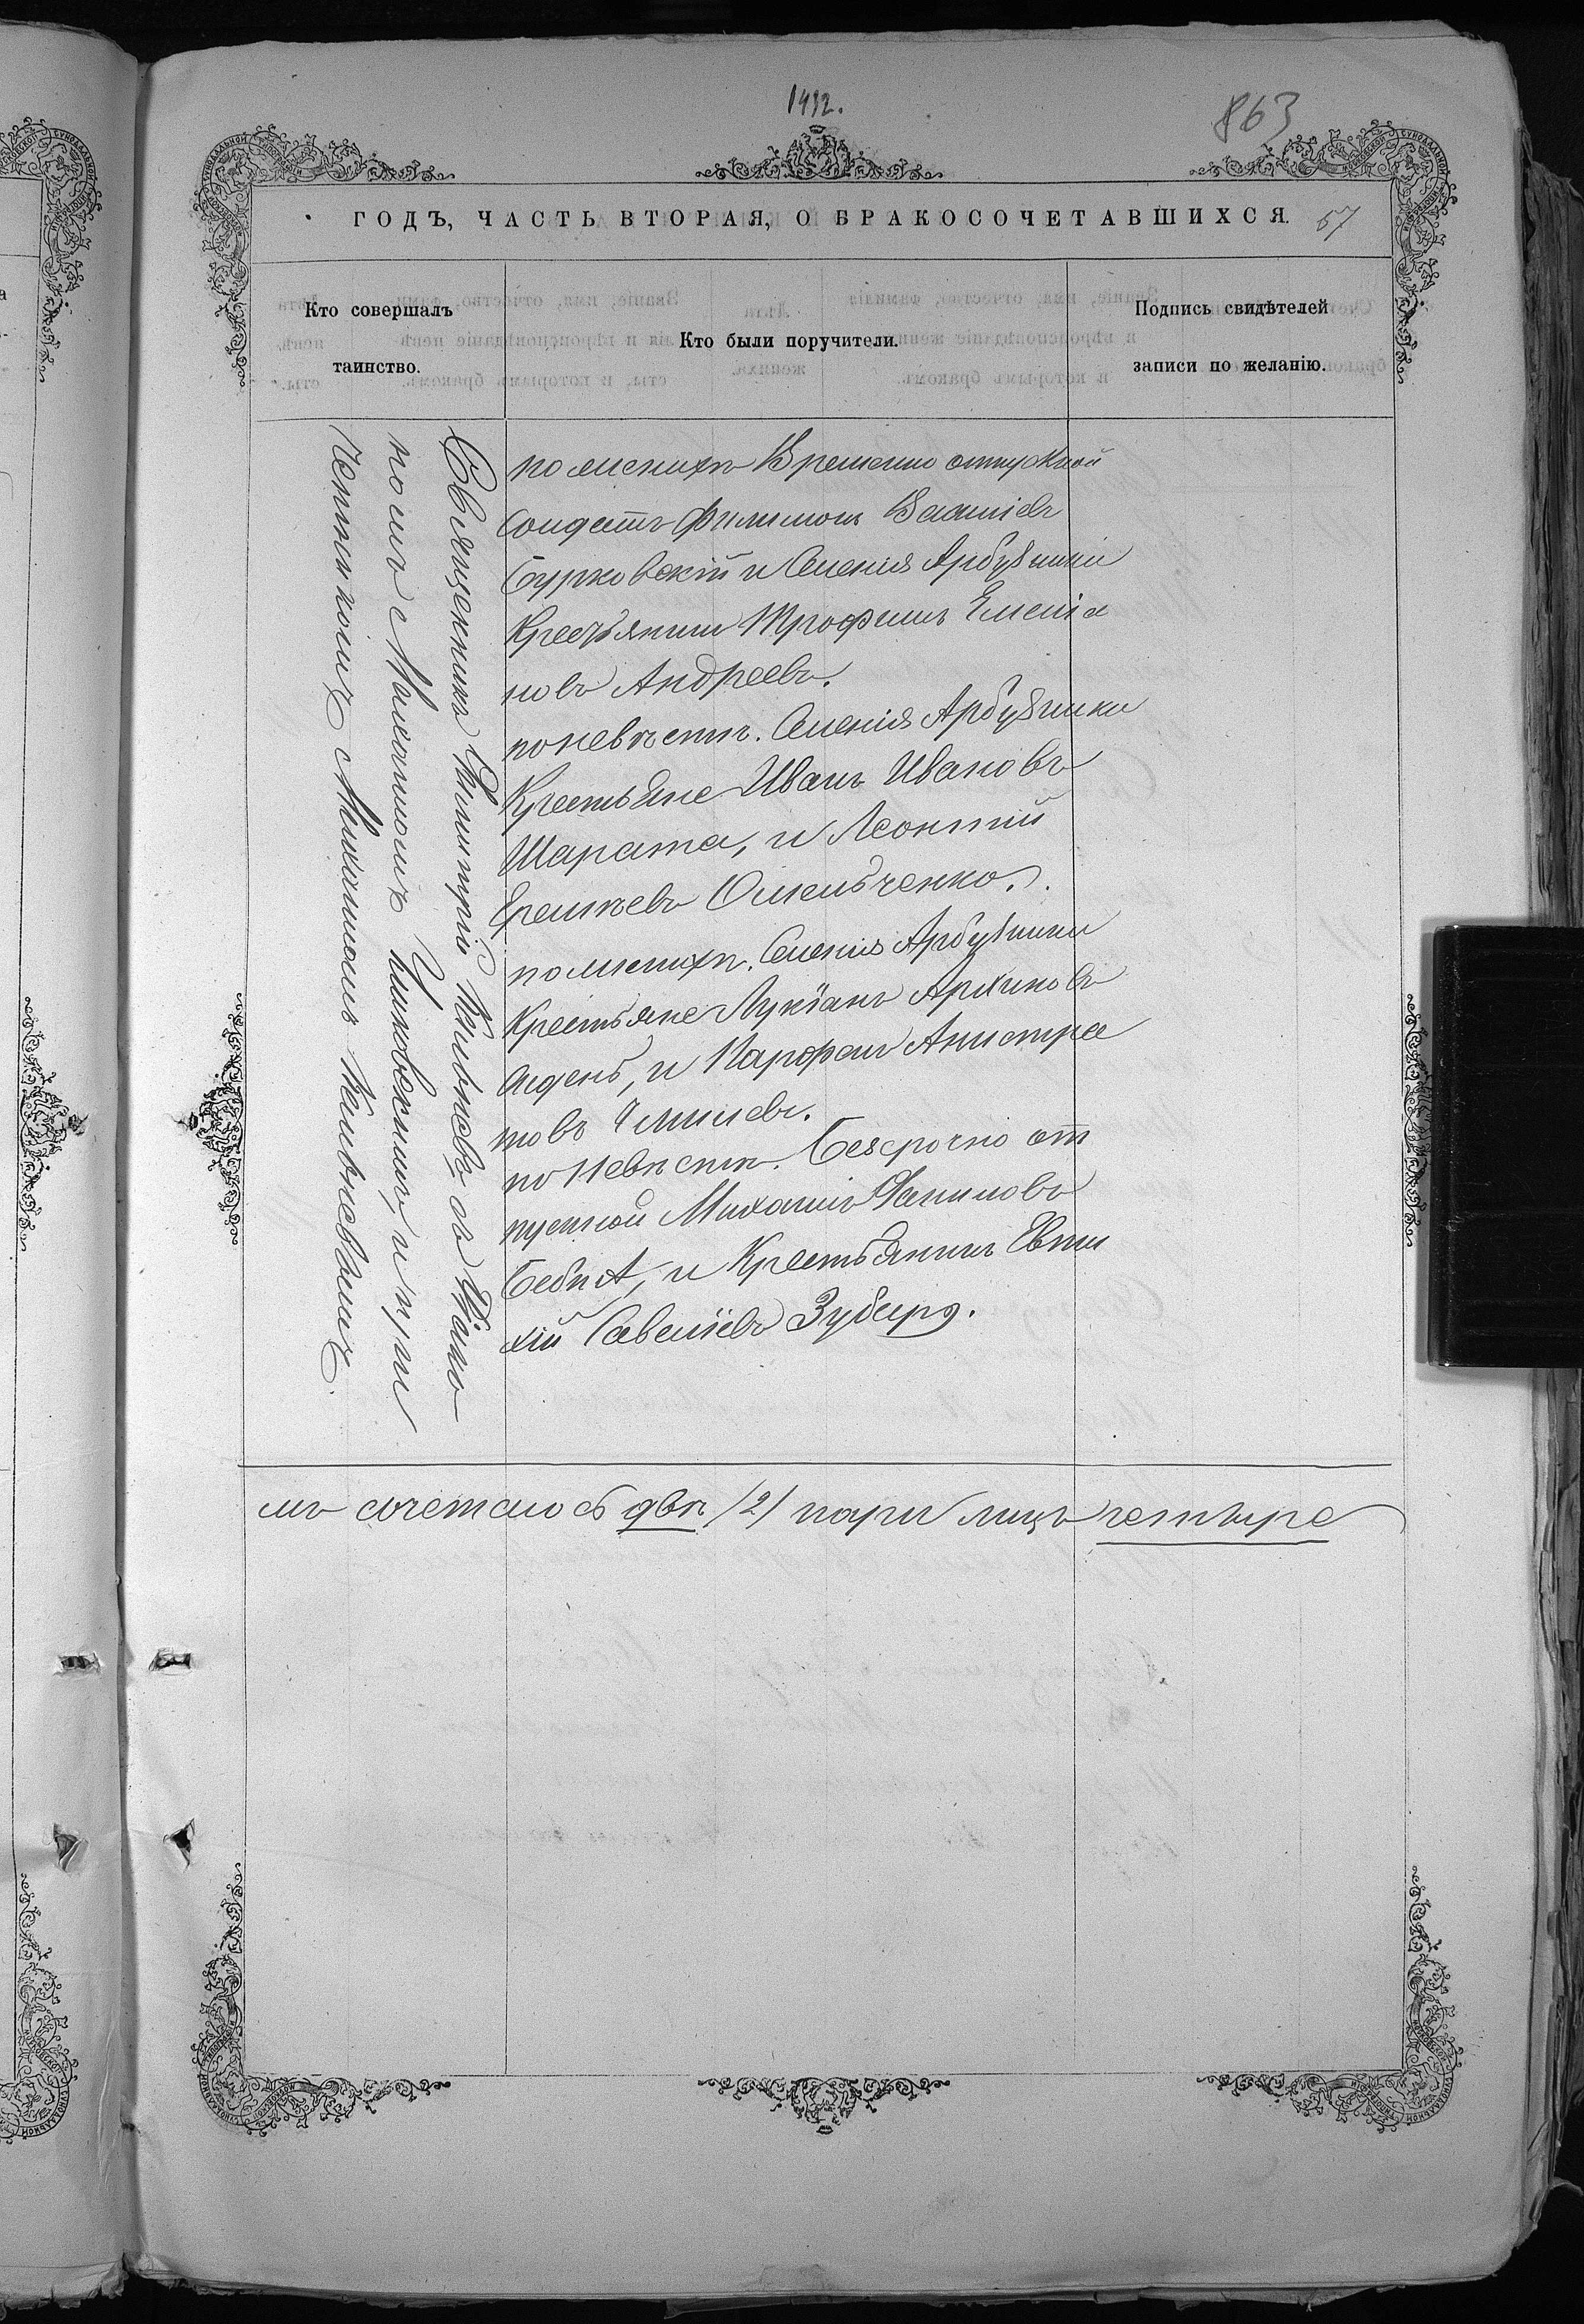 1412.
863
ГОДЪ, ЧАСТЬ ВТОРАЯ, О БРАКОСОЧЕТАВШИХСЯ.
57
Кто совершалъ
таинство.
Кто были поручители.
Подпись свидѣтелей
записи по желанію.
Священникъ Димитрій
номъ Николаемъ и при
четникомъ
по женихѣ Временно отпускной
Солдатъ Филимонъ
Бурковскій и Селенія Арбузинки
Крестьянинъ Трофимъ Емелiа
новъ Андреевъ.
по невѣстѣ. Селенія Арбузинки
Крестьяне Иванъ Ивановъ
Шарата, и Леонтій
Еремѣевъ Омельченко.
по женихѣ. Селенія Арбузинки
Крестьяне Лукіанъ Архиповъ
и Парфенъ Анистра
товъ
по Невѣстѣ. Безсрочно от
пускной Михаилъ
и Крестьянинъ Евти
хій Савеліевъ Зубарь.
мъ сочеталось двѣ /2/ пары лицъ четыре